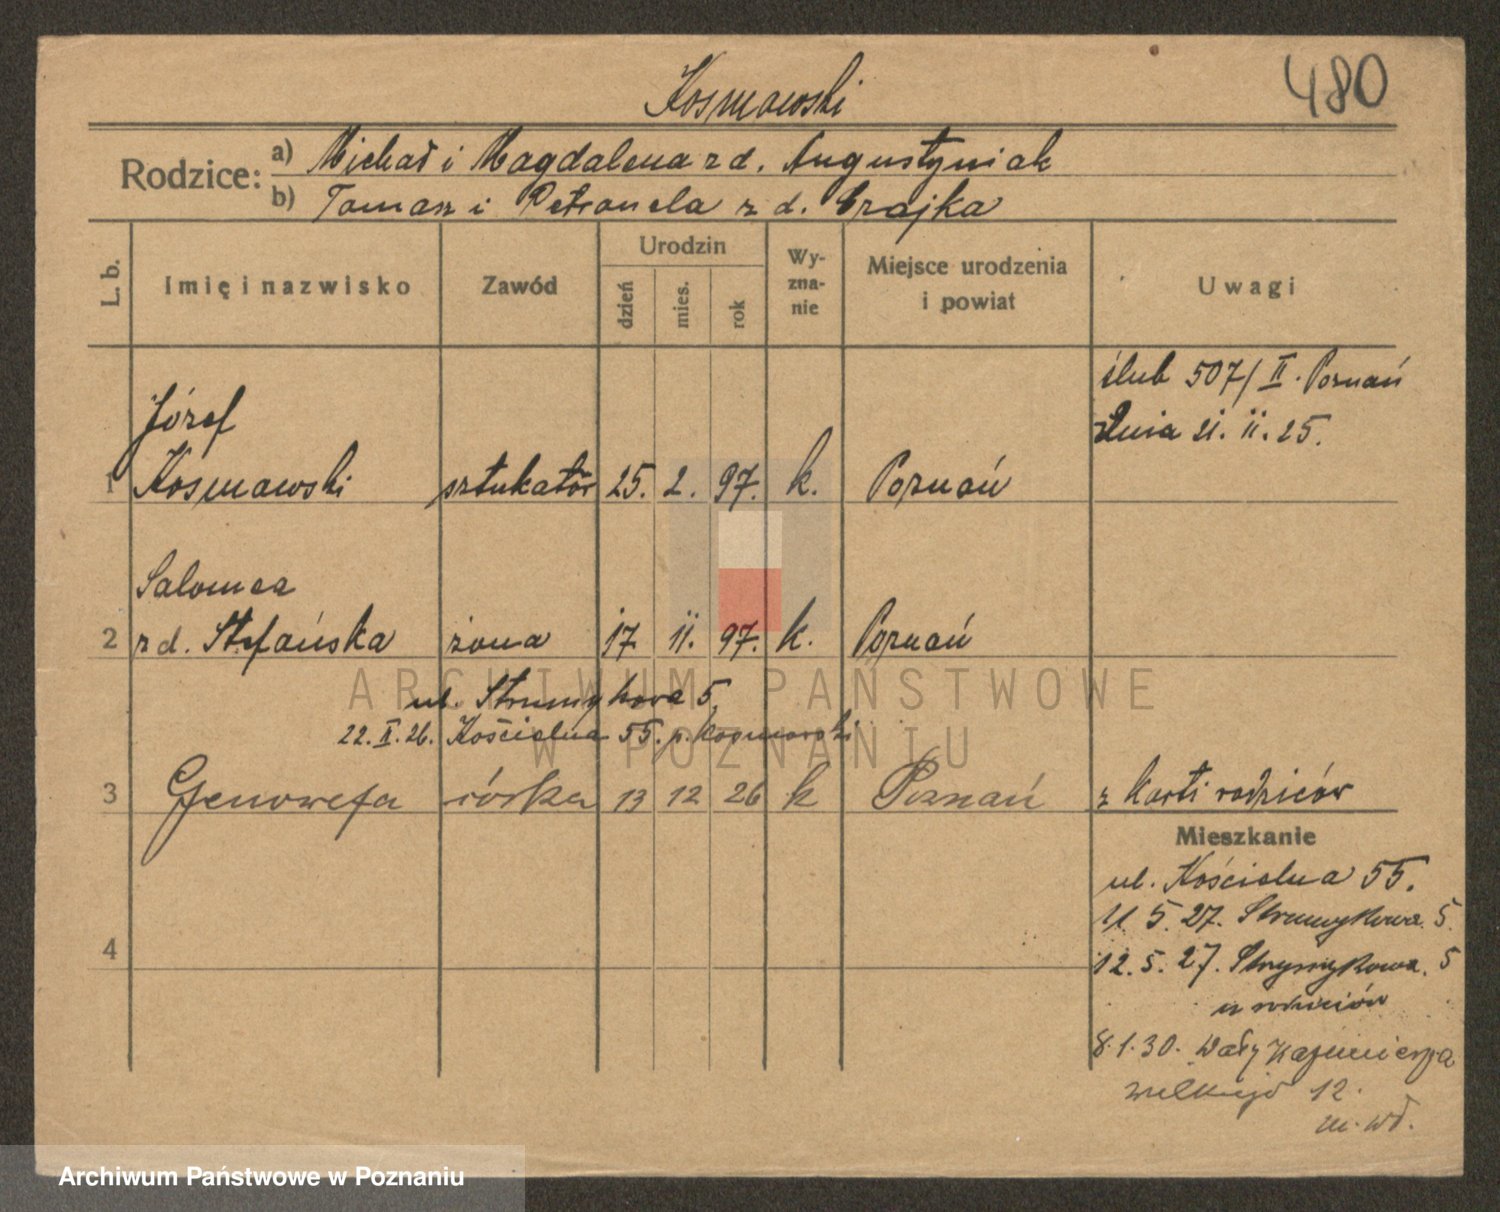 480
Kosmowski
Rodzice: a) Michał i Magdalena z d. Augustyniak
b) Tomasz i Petronela z d. Czajka
L. b. Imię i nazwisko Zawód Urodzin dzień mies. rok Wy-zna-nie Miejsce urodzenia i powiat Uwagi
ślub 507/II. Poznań
dnia 21. 11. 25.
Józef
1 Kosmowski sztukator 25. 2. 97. k. Poznań
Salomea
2 z d. Stefańska żona 17 11. 97. k. Poznań
ul. Strumykowa 5.
22. X. 26. Kościelna 55. p. Kosmowski
3 Genowefa córka 13 12 26 k Poznań z karti rodziców
Mieszkanie
ul. Kościelna 55.
5. 27. Strumykowa 5.
4
12. 5. 27. Strumykowa 5
u rodziców
8.1.30. Wały Kazimierza
Wielkiego 12.
m. wł.
ARCHIWUM PAŃSTWOWE
W POZNANIU
Archiwum Państwowe w Poznaniu